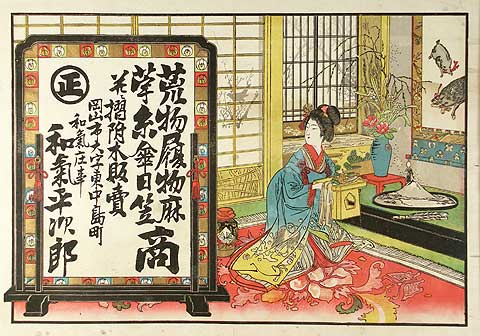 荒物履物麻
苧糸傘日笠商
並摺附木販賣
岡山市大字東中島町
和氣庄事
和氣平次郎
正